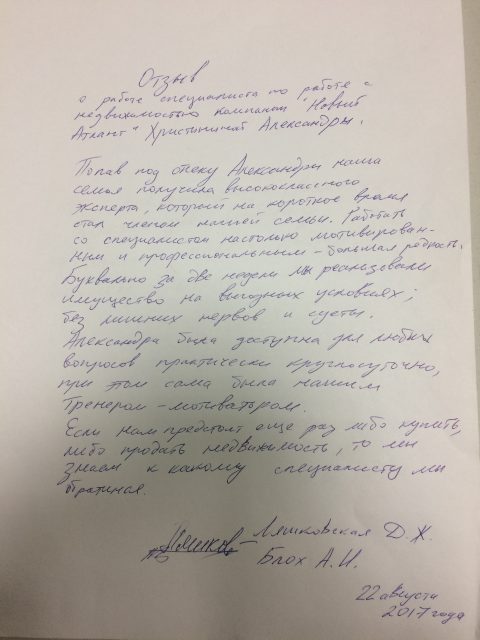 Отзыв
о работе специалиста по работе с
недвижимостью компании "Новый
Атлант" Христининой Александры.
Попав под опеку Александры наша
семья получила высококлассного
эксперта, который на короткое время
стал членом нашей семьи. Работать
со специалистом настолько мотивирован-
ным и профессиональным - большая редкость.
Буквально за две недели мы реализовали
имущество на выгодных условиях;
без лишних нервов и суеты.
Александра была доступна для любых
вопросов практически круглосуточно,
при этом сама была нашим
Тренером-мотиватором.
Если нам предстоит еще раз либо купить,
либо продать недвижимость, то мы
знаем к какому специалисту мы
обратимся.
Ляшковская Д.Ж.
Блох А.И.
22 августа
2017 года